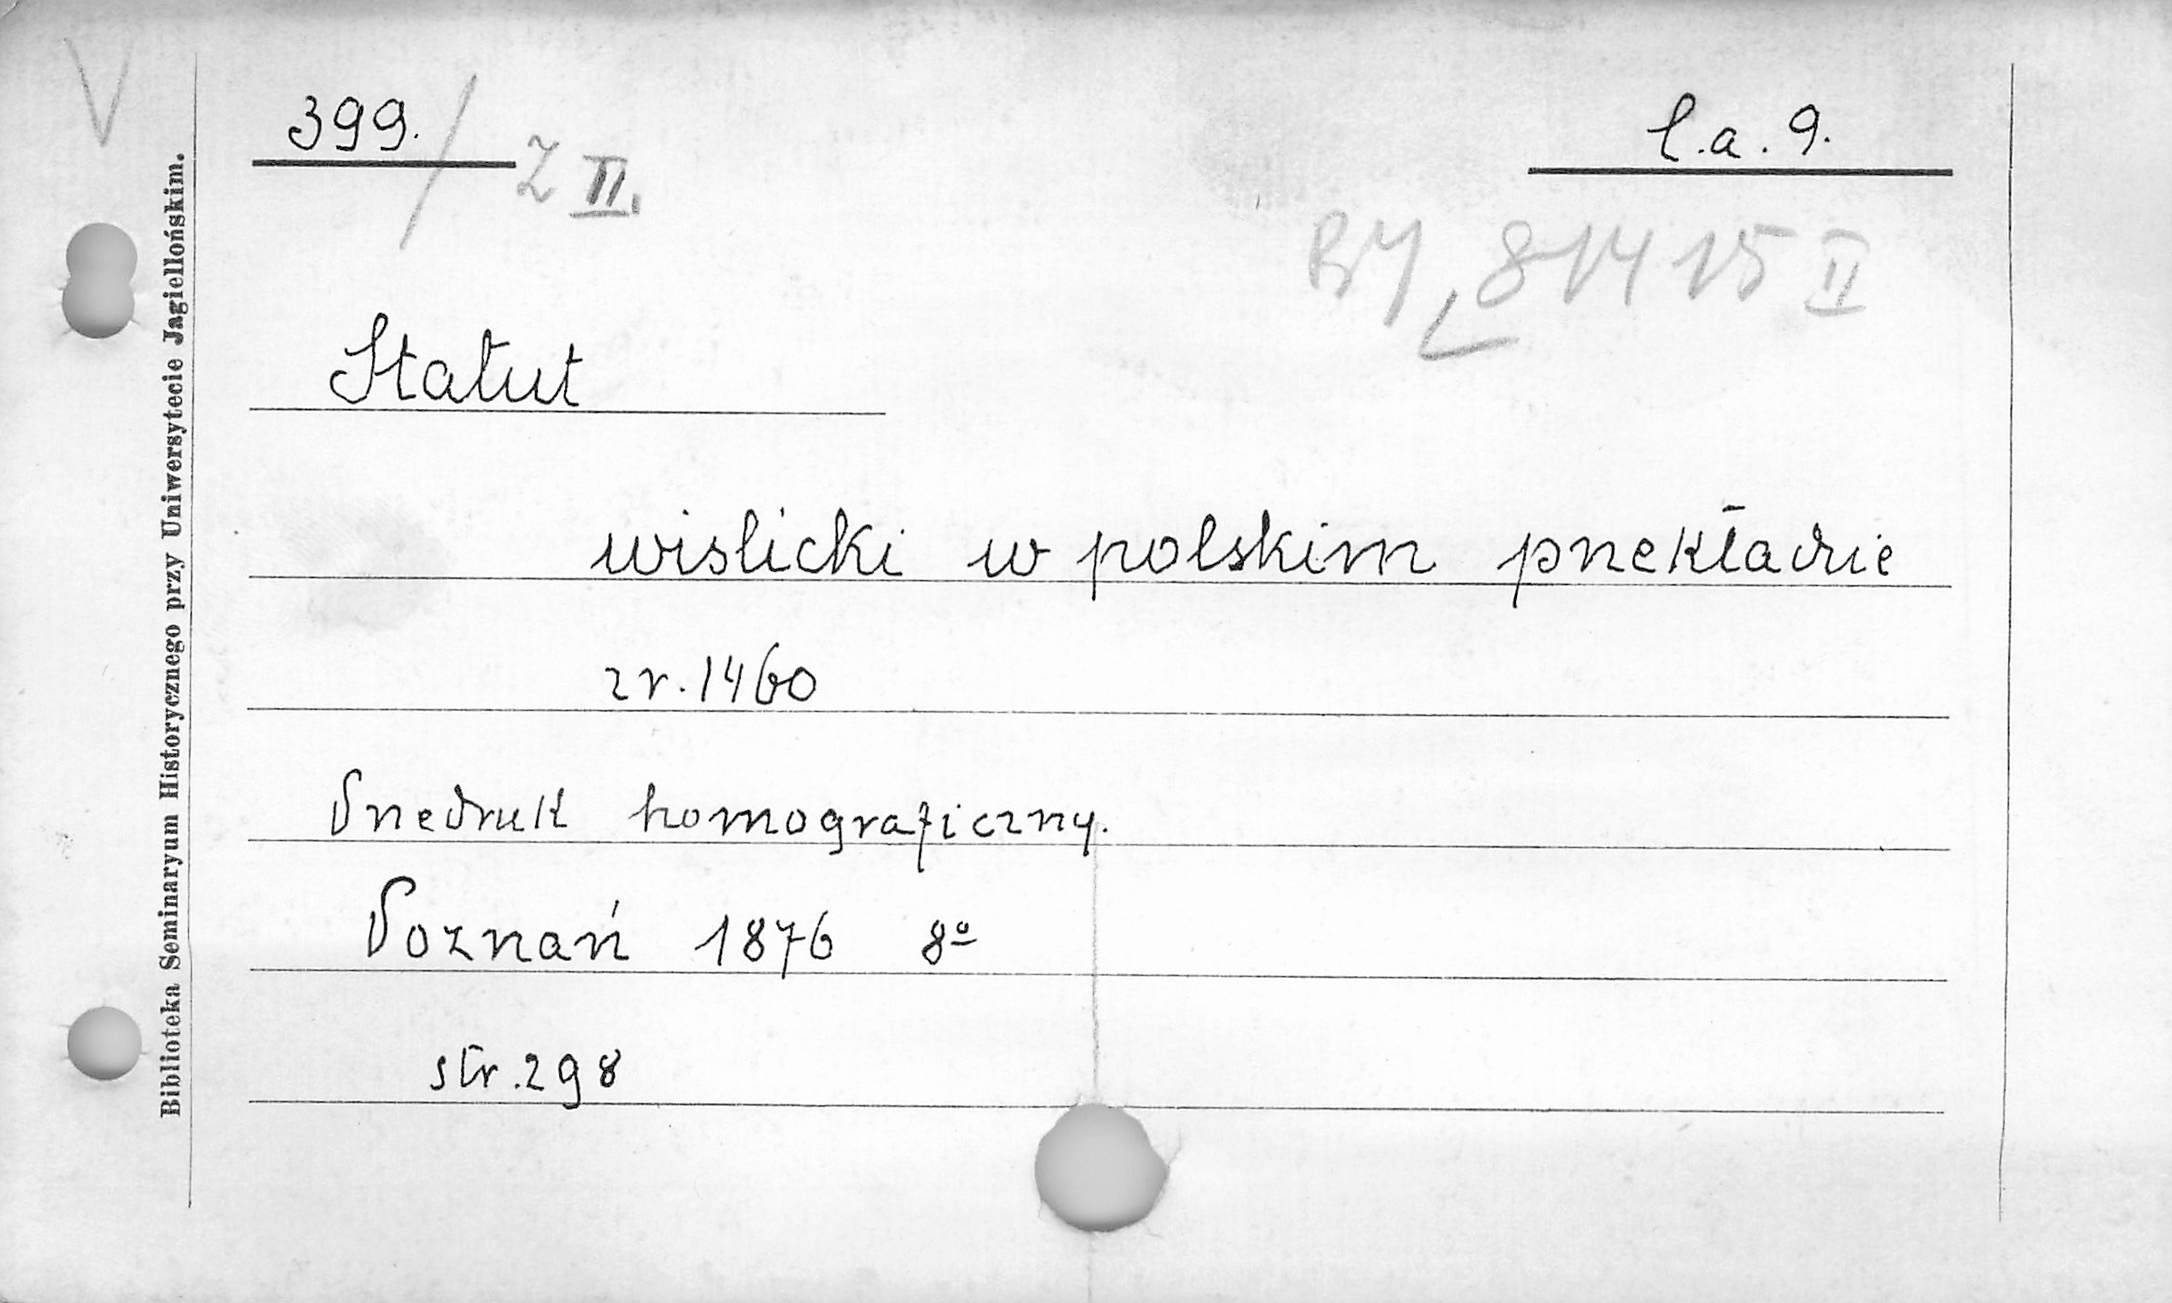 V
399. / Z II.
l.a.9.
BJ 81415 II
Statut
wislicki w polskim przekładzie
z r. 1460
Przedruk homograficzny.
Poznań 1876 8º
str. 298
Biblioteka Seminaryum Historycznego przy Uniwersytecie Jagiellońskim.